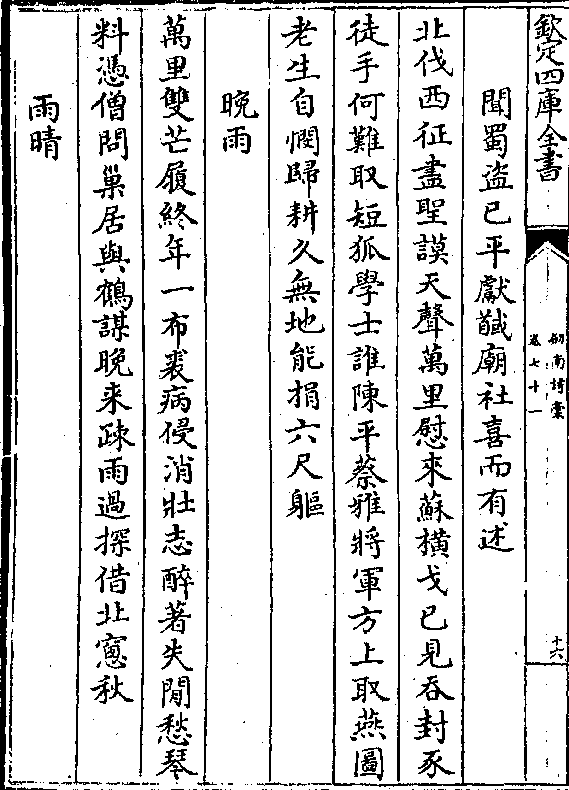 欽定四庫全書
劍南詩稾
卷七十一
十六
聞蜀盜已平獻馘廟社喜而有述
北伐西征盡聖謨天聲萬里慰來蘇橫戈已見吞封豕
徒手何難取短狐學士誰陳平蔡雅將軍方上取燕圖
老生自憫歸耕久無地能捐六尺軀
晚雨
萬里雙芒屨終年一布裘病侵消壯志醉著失閒愁琴
料憑僧問巢居與鶴謀晚来疎雨過探借北窻秋
雨晴